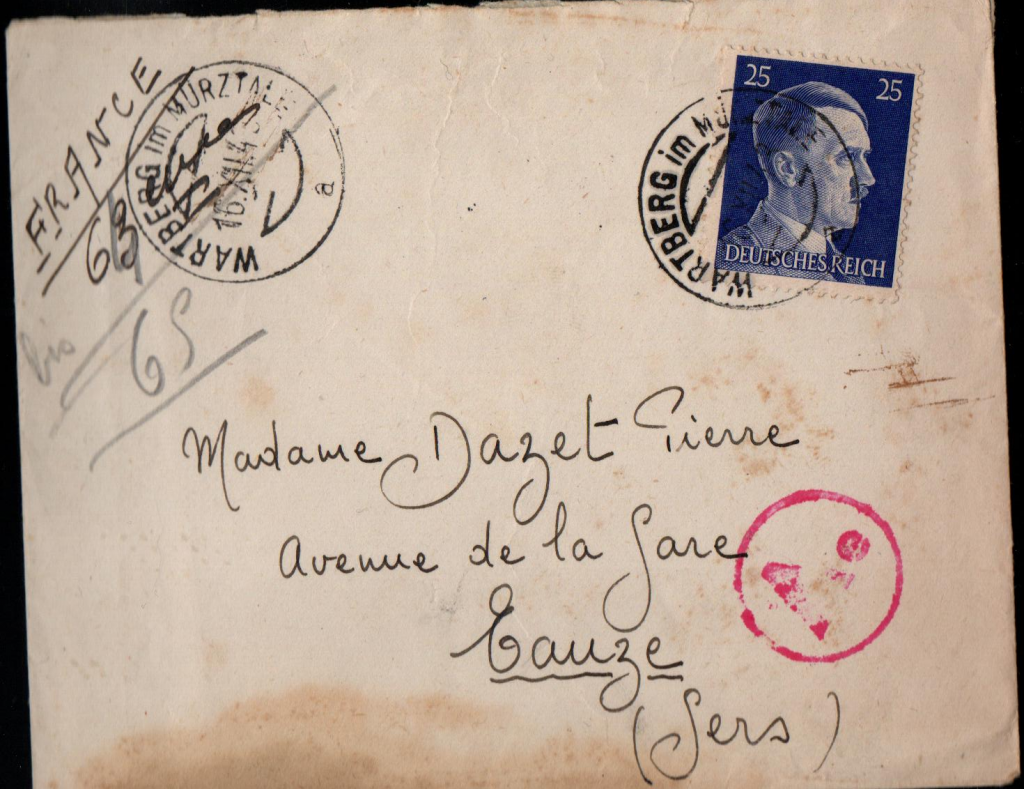 FRANCE
WARTBERG im MÜRZTALE
16.XII.43
a
63
bis
65
25 25
DEUTSCHES REICH
WARTBERG im MÜRZTALE
a
Madame Dazet Pierre
Avenue de la Gare
Eauze
(Gers)
A e